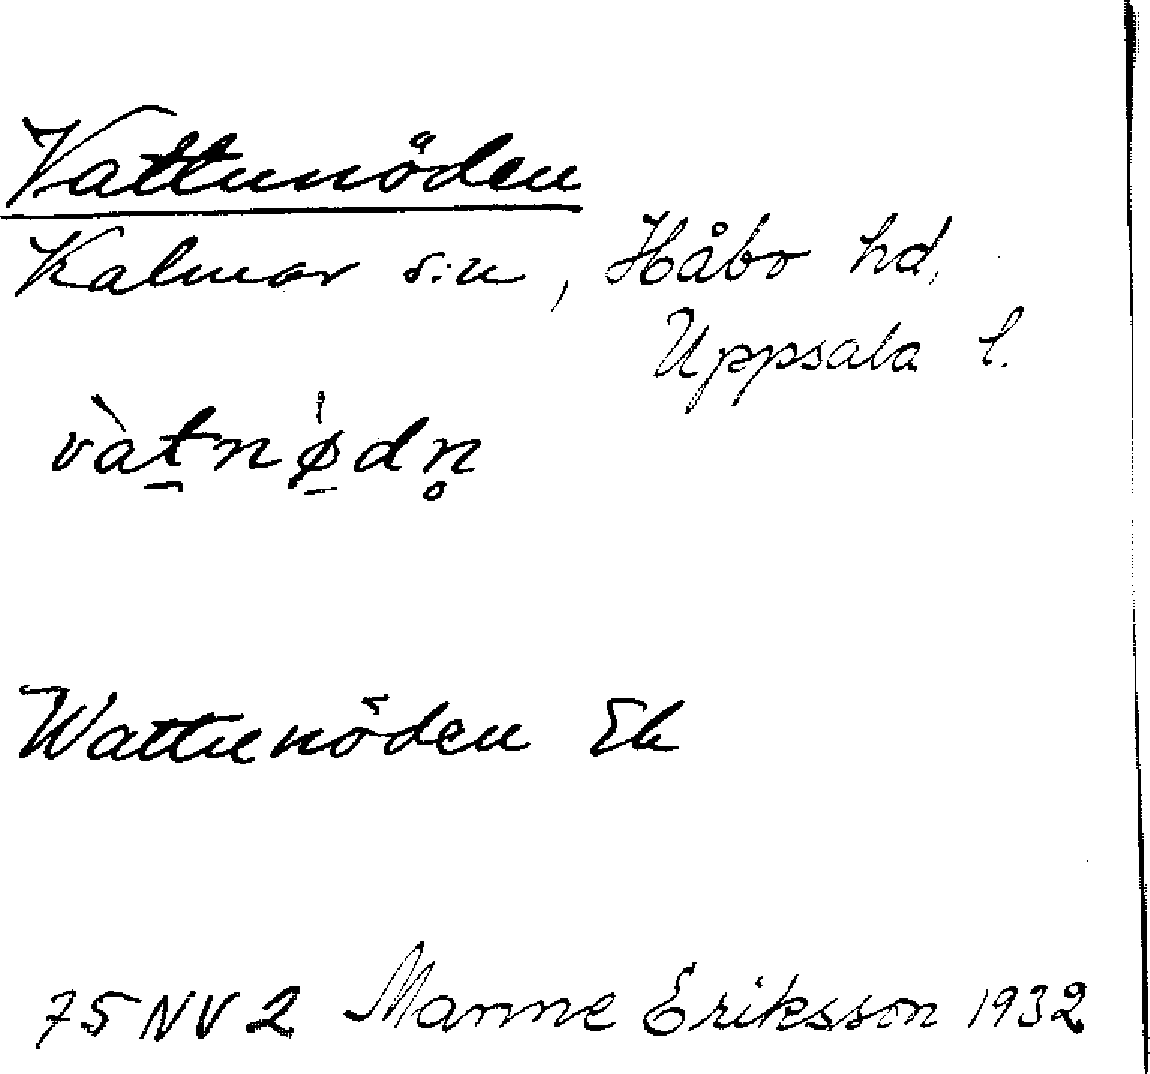 Vattunöden
Kalmar s:n, Håbo hd.
Uppsala l.
vàt̠nø̠̍dn̥
Wattunöden Ek
75 NV 2 Manne Eriksson 1932